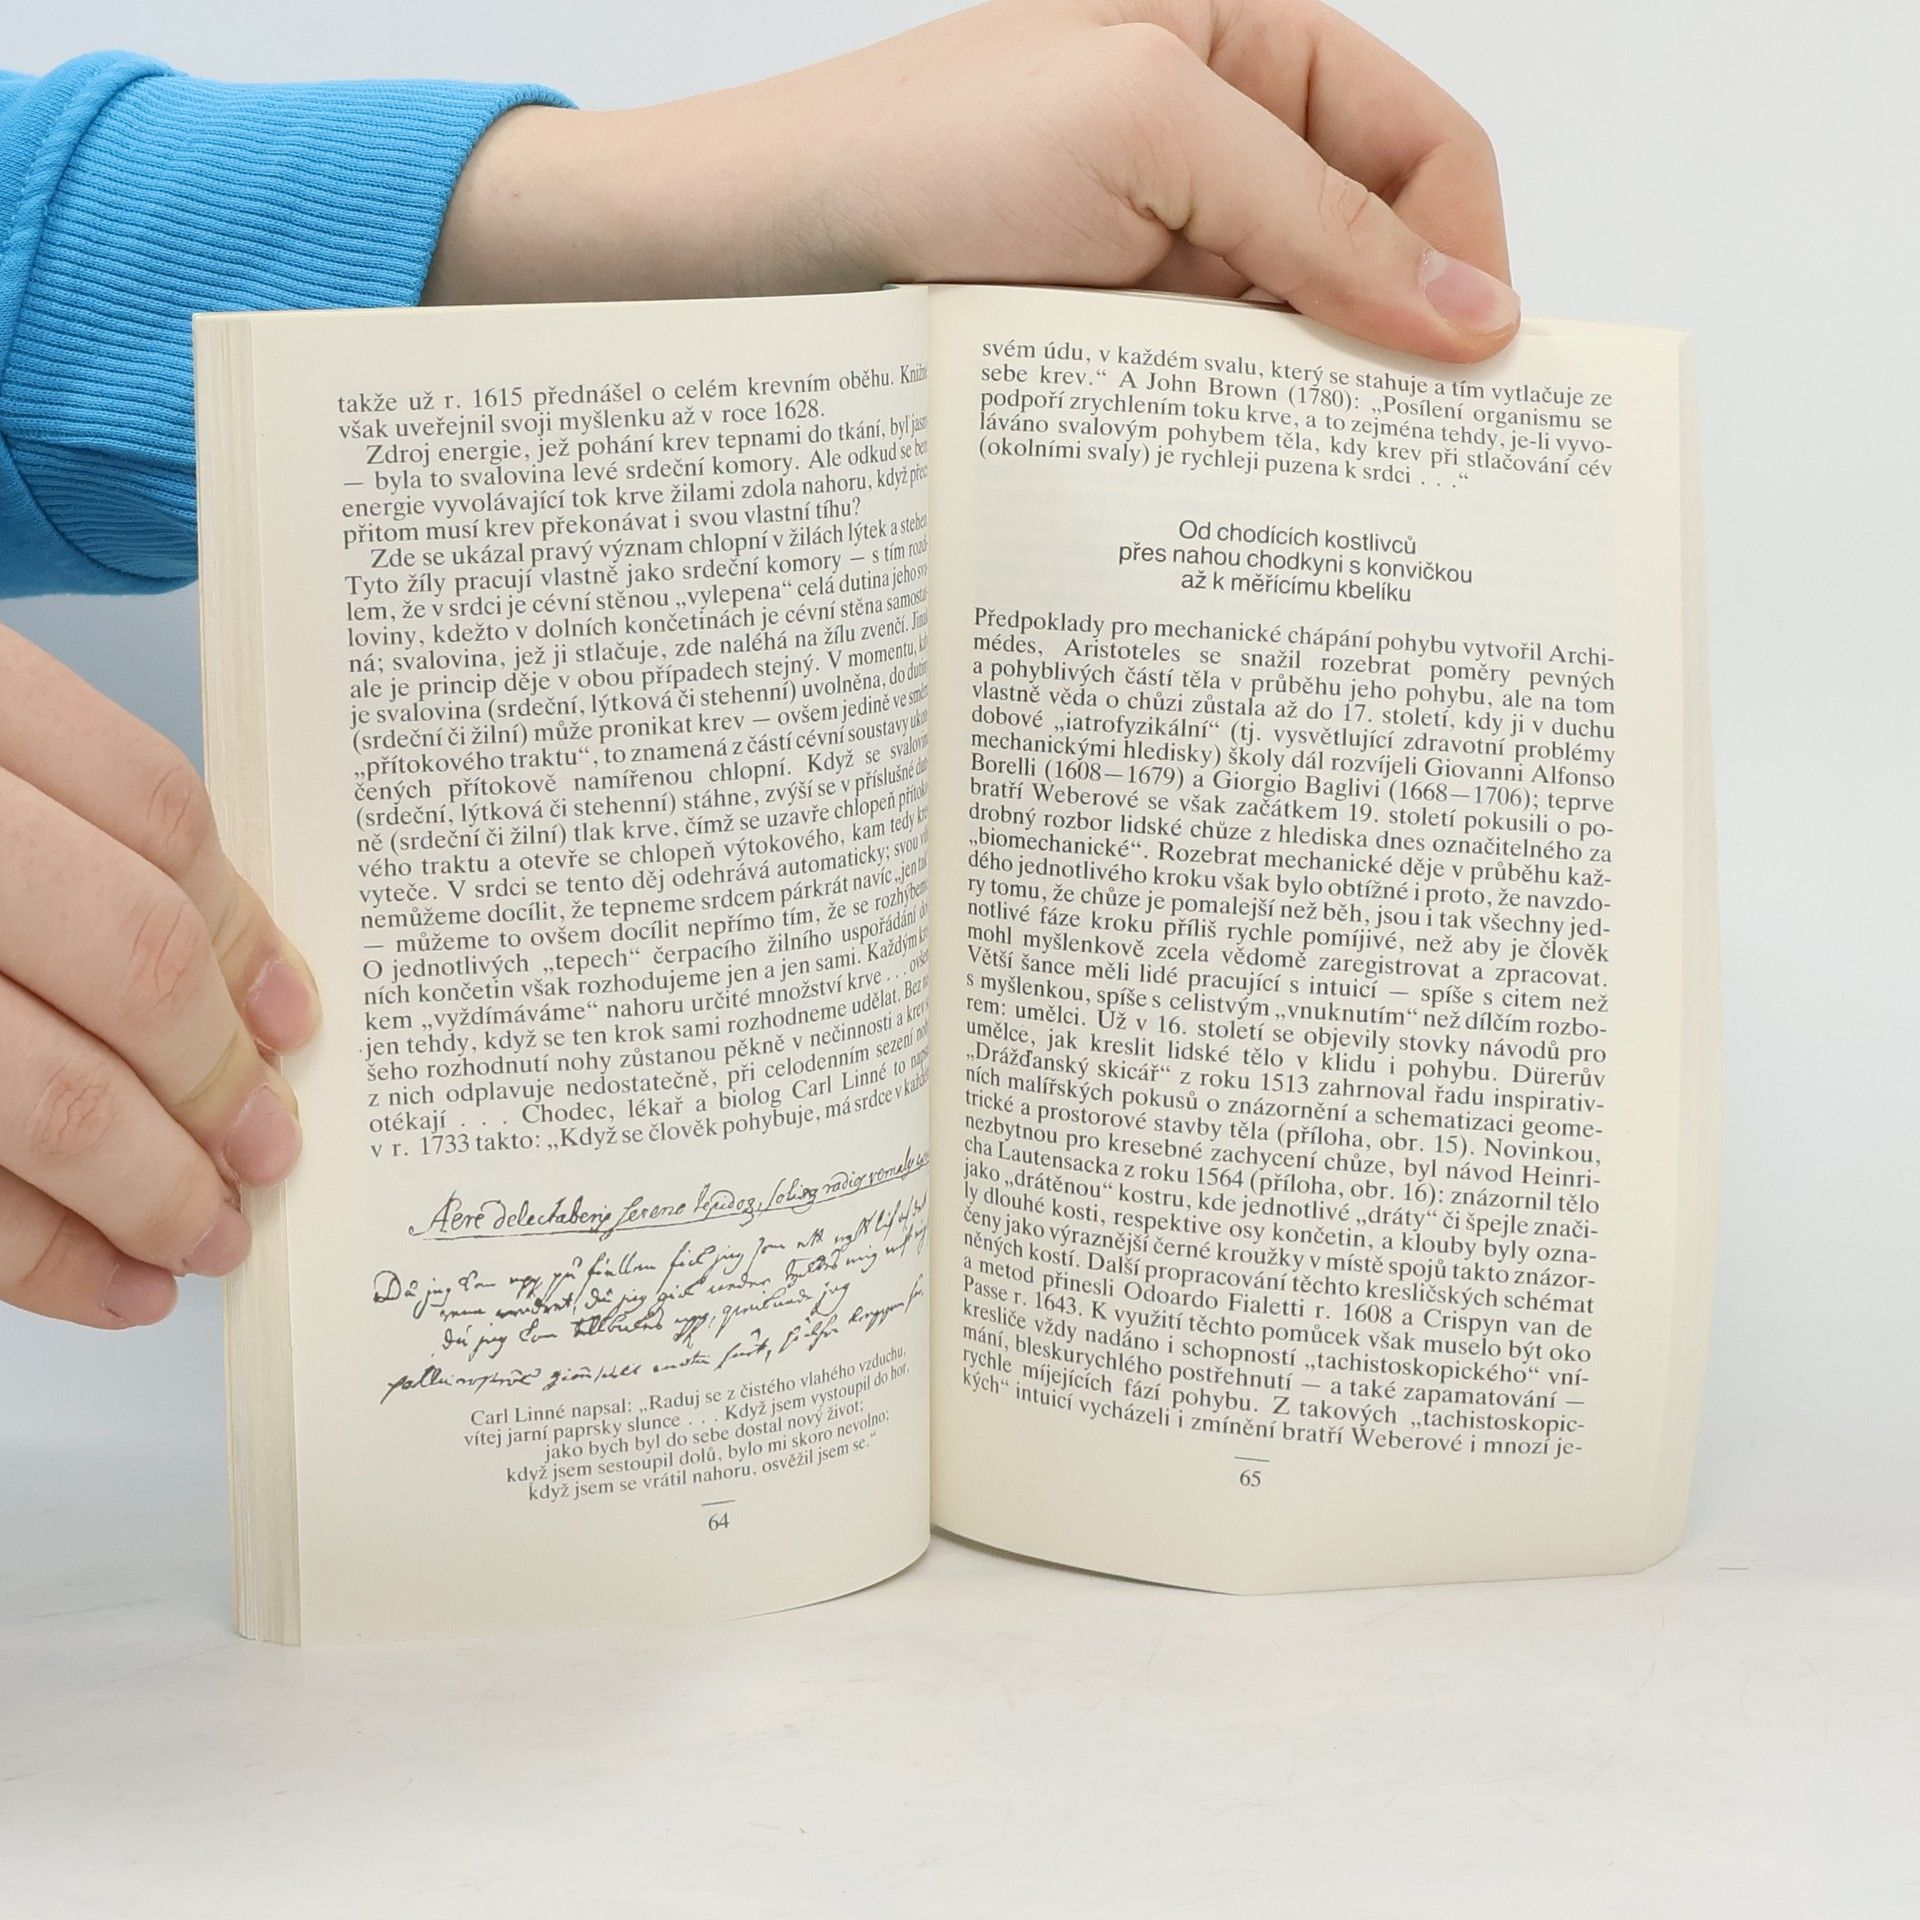 takže už r. 1615 přednášel o celém krevním oběhu. Knižně
však uveřejnil svoji myšlenku až v roce 1628.
Zdroj energie, jež pohání krev tepnami do tkání, byl jasný
— byla to svalovina levé srdeční komory. Ale odkud se bere
energie vyvolávající tok krve žilami zdola nahoru, když přece
přitom musí krev překonávat i svou vlastní tíhu?
Zde se ukázal pravý význam chlopní v žilách lýtek a stehen.
Tyto žíly pracují vlastně jako srdeční komory — s tím rozdí-
lem, že v srdci je cévní stěnou „vylepena“ celá dutina jeho sva-
loviny, kdežto v dolních končetinách je cévní stěna samostat-
ná; svalovina, jež ji stlačuje, zde naléhá na žílu zvenčí. Jinak
ale je princip děje v obou případech stejný. V momentu, kdy
je svalovina (srdeční, lýtková či stehenní) uvolněna, do dutiny
(srdeční či žilní) může pronikat krev — ovšem jedině ve směru
„přítokového traktu“, to znamená z částí cévní soustavy ukon-
čených přítokově namířenou chlopní. Když se svalovina
(srdeční, lýtková či stehenní) stáhne, zvýší se v příslušné duti-
ně (srdeční či žilní) tlak krve, čímž se uzavře chlopeň přítoko-
vého traktu a otevře se chlopeň výtokového, kam tedy krev
vyteče. V srdci se tento děj odehrává automaticky; svou vůlí
nemůžeme docílit, že tepneme srdcem párkrát navíc „jen tak“
— můžeme to ovšem docílit nepřímo tím, že se rozhýbeme.
O jednotlivých „tepech“ čerpacího žilního uspořádání dol-
ních končetin však rozhodujeme jen a jen sami. Každým kro-
kem „vyždímáváme“ nahoru určité množství krve . . . ovšem
jen tehdy, když se ten krok sami rozhodneme udělat. Bez na-
šeho rozhodnutí nohy zůstanou pěkně v nečinnosti a krev se
z nich odplavuje nedostatečně, při celodenním sezení nohy
otékají . . . Chodec, lékař a biolog Carl Linné to napsal
v r. 1733 takto: „Když se člověk pohybuje, má srdce v každém
Carl Linné napsal: „Raduj se z čistého vlahého vzduchu,
vítej jarní paprsky slunce . . . Když jsem vystoupil do hor,
jako bych byl do sebe dostal nový život;
když jsem sestoupil dolů, bylo mi skoro nevolno;
když jsem se vrátil nahoru, osvěžil jsem se.“
64
svém údu, v každém svalu, který se stahuje a tím vytlačuje ze
sebe krev.“ A John Brown (1780): „Posílení organismu se
podpoří zrychlením toku krve, a to zejména tehdy, je-li vyvo-
láváno svalovým pohybem těla, kdy krev při stlačování cév
(okolními svaly) je rychleji puzena k srdci . . .“
Od chodících kostlivců
přes nahou chodkyni s konvičkou
až k měřícímu kbelíku
Předpoklady pro mechanické chápání pohybu vytvořil Archi-
médes, Aristoteles se snažil rozebrat poměry pevných
a pohyblivých částí těla v průběhu jeho pohybu, ale na tom
vlastně věda o chůzi zůstala až do 17. století, kdy ji v duchu
dobové „iatrofyzikální“ (tj. vysvětlující zdravotní problémy
mechanickými hledisky) školy dál rozvíjeli Giovanni Alfonso
Borelli (1608—1679) a Giorgio Baglivi (1668—1706); teprve
bratří Weberové se však začátkem 19. století pokusili o po-
drobný rozbor lidské chůze z hlediska dnes označitelného za
„biomechanické“. Rozebrat mechanické děje v průběhu kaž-
dého jednotlivého kroku však bylo obtížné i proto, že navzdo-
ry tomu, že chůze je pomalejší než běh, jsou i tak všechny jed-
notlivé fáze kroku příliš rychle pomíjivé, než aby je člověk
mohl myšlenkově zcela vědomě zaregistrovat a zpracovat.
Větší šance měli lidé pracující s intuicí — spíše s citem než
s myšlenkou, spíše s celistvým „vnuknutím“ než dílčím rozbo-
rem: umělci. Už v 16. století se objevily stovky návodů pro
umělce, jak kreslit lidské tělo v klidu i pohybu. Dürerův
„Drážďanský skicář“ z roku 1513 zahrnoval řadu inspirativ-
ních malířských pokusů o znázornění a schematizaci geome-
trické a prostorové stavby těla (příloha, obr. 15). Novinkou,
nezbytnou pro kresebné zachycení chůze, byl návod Heinri-
cha Lautensacka z roku 1564 (příloha, obr. 16): znázornil tělo
jako „drátěnou“ kostru, kde jednotlivé „dráty“ či špejle znači-
ly dlouhé kosti, respektive osy končetin, a klouby byly ozna-
čeny jako výraznější černé kroužky v místě spojů takto znázor-
něných kostí. Další propracování těchto kresličských schémat
a metod přinesli Odoardo Fialetti r. 1608 a Crispyn van de
Passe r. 1643. K využití těchto pomůcek však muselo být oko
kresliče vždy nadáno i schopností „tachistoskopického“ vní-
mání, bleskurychlého postřehnutí — a také zapamatování —
rychle míjejících fází pohybu. Z takových „tachistoskopic-
kých“ intuicí vycházeli i zmínění bratří Weberové i mnozí je-
65